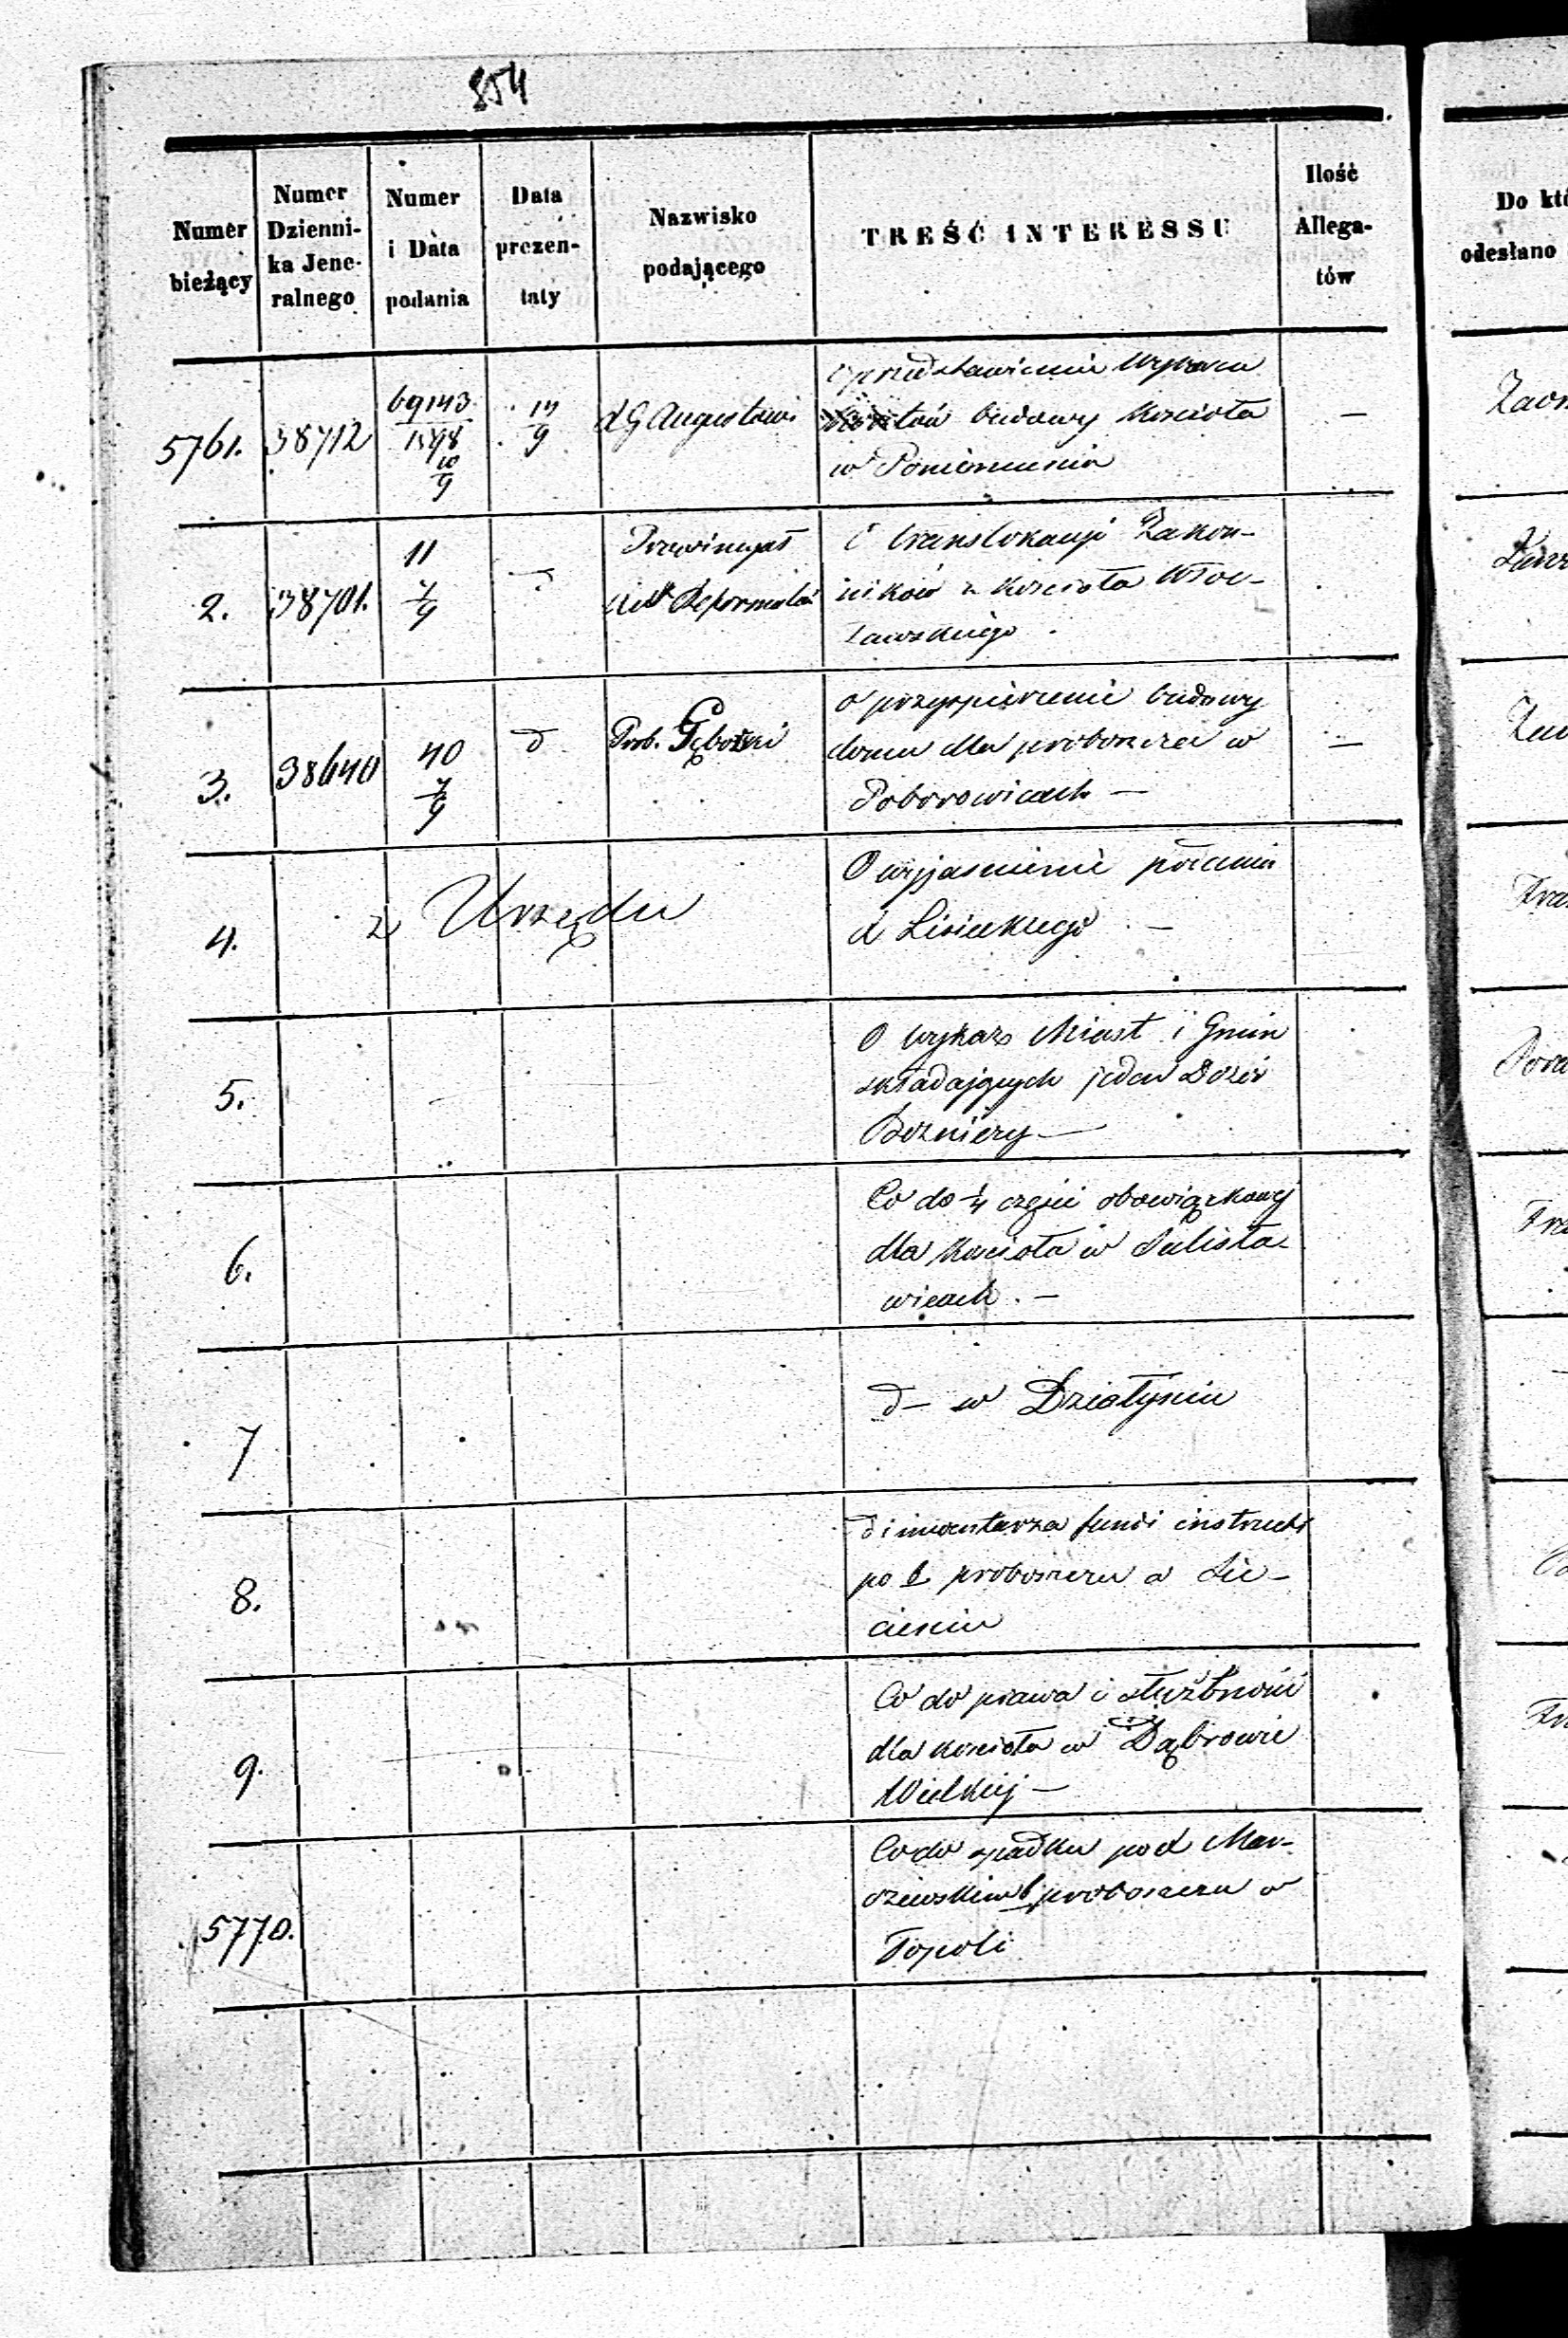 854
Numer bieżący
Numer Dzienni-ka Jene-ralnego
Numer i Data podania
Data prezen-taty
Nazwisko podającego
TREŚĆ INTERESSU
Ilość Allega-tów
Do któ
odesłano
5761. 38712 69143 14/9
10/9
budowy Kościoła
w Poniemuniu
—
2. 38701. 11 7/9
Prowincyał
Reformatów
O translokacyi Zakon-
ników z Kościoła Włoc-
ławskiego
3. 38640 40 7/9 d Prob.
o przyspieszenie budowy
domu dla proboszcza w
Poborowicach —
—
4. z Urzędu
O wyjaśnienie
X Lisieckiego —
5.
O wykaz Miast i Gmin
składających jeden Dozór
Bożniczy —
6.
Co do ¼ części obowiązkowej
dla Kościoła w Sulisła-
wicach. —
7
d — w Działyniu
8.
inwentarza fundi instructi
po proboszczu w
9.
Co do prawa i służbności
dla kościoła w Dąbrowie
Wielkiej —
5770.
Co do spadku po X Mar-
szewskim b proboszczu w
Topoli